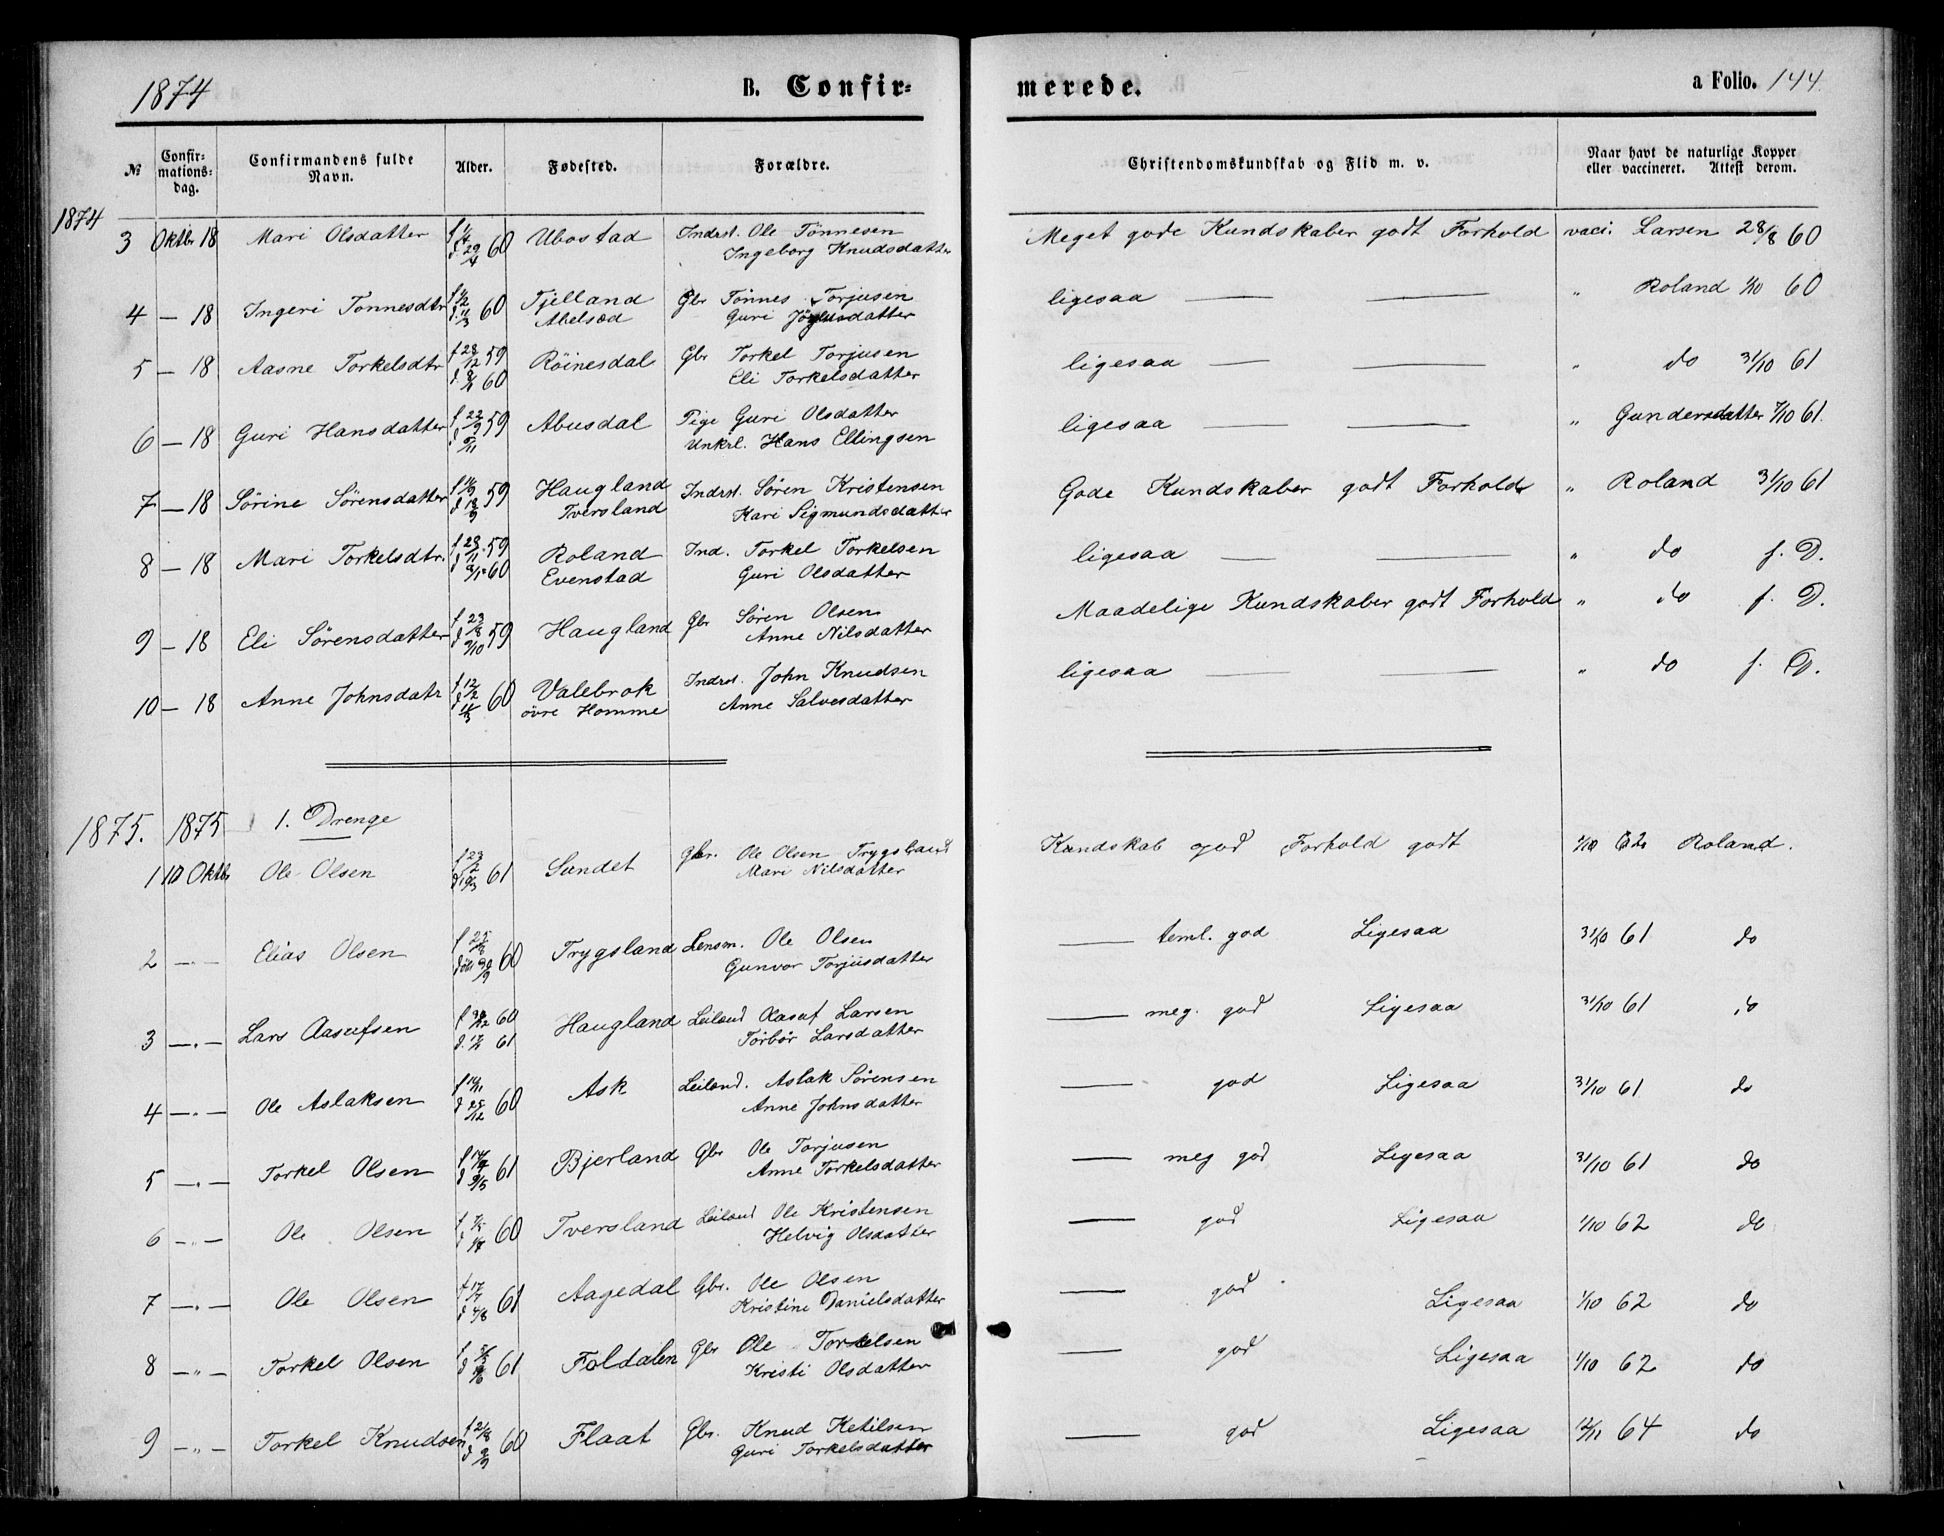 1874 B. Confir- merede. a Folio. 144
№ Confir-mations-dag. Confirmandens fulde Navn. Alder. Fødested. Forældre. Christendomskundskab og Flid m. v. Naar havt de naturlige Kopper eller vaccineret. Attest derom.
1874
3 Oktbr 18 Mari Olsdatter 60 Ubostad Indrst. Ole Tönnesen Meget gode Kundskaber godt Forhold vaci. Larsen 28/8 60
d 29/4 Ingeborg Knudsdatter
4 — 18 Ingeri Tonnesdtr 60 Tjelland Gbr Tönnes Torjusen ligesaa — — " Roland 1/10 60
Abelsæd Guri
5 — 18 Aasne Torkelsdtr f 28/12 59 Röinesdal Gbr Torkel Torjusen ligesaa — — " do 31/10 61
60 Eli Torkelsdatter
6 — 18 Guri Hansdatter 59 Abusdal Pige Guri Olsdatter ligesaa — — " Gundersdatter 7/10 61.
Unkrl. Hans Ellingsen
7 — 18 Sörine Sörensdatter 59 Haugland Indrst. Sören Kristensen Gode Kundskaber godt Forhold " Roland 31/10 61
Tversland Kari Sigmundsdatter
8 — 18 Mari Torkelsdtr. f 28/11 59 Roland Ind. Torkel Torkelsen ligesaa — — " do f. D.
60 Evenstad Guri Olsdatter
9 — 18 Eli Sörensdatter f 23/8 59 Haugland Gbr Sören Olsen Maadelige Kundskaber godt Forhold " do f. D.
Anne Nilsdatter
10 — 18 Anne Johnsdatr f 12/2 60 Valebrok Indrst. John Knudsen ligesaa — — " do f. D.
övre Homme Anne Salvesdatter
1875. 1875 1. Drenge
1 10 Oktbr Ole Olsen f 23/2 61 Sundet gbr. Ole Olsen Trygsland Kundskab god Forhold godt 1/10 62 Roland.
Mari Nilsdatter
2 —.— Elias Olsen 60 Trygsland Lensm. Ole Olsen — teml. god Ligesaa 31/10 61 do
Gunvor Torjusdatter
3 —.— Lars Aasufsen 60 Haugland Leiland Aasuf Larsen — meg. god Ligesaa 31/10 61 do
61 Torbör Larsdatter
4 —.— Ole Aslaksen 60 Ask Leiland. Aslak Sörensen — god Ligesaa 31/10 61 do
d 25/12 Anne Johnsdatter
5 —.— Torkel Olsen 61 Bjerland Gbr Ole Torjusen — meg god Ligesaa 31/10 61 do
d 9/5 Anne Torkelsdatter
6 —"— Ole Olsen 60 Tversland Leiland Ole Kristensen — god Ligesaa 1/10 62 do
Helvig Olsdatter
7 —.— Ole Olsen 61 Aagedal Gbr. Ole Olsen — god Ligesaa 1/10 62 do
Kristine Danielsdatter
8 —"— Torkel Olsen 61 Foldalen Gbr Ole Torkelsen — god Ligesaa 1/10 62 do
Kristi Olsdatter
9 —"— Torkel Knudsen f 21/8 60 Flaat Gbr. Knud Ketilsen — god Ligesaa 12/11 64 do
Guri Torkelsdatter